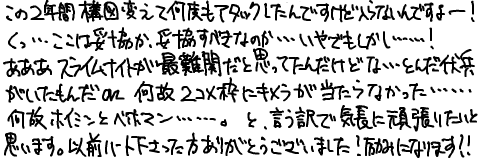 この2年間構図変えて何度もアタックしたんですけど入らないんですよー!
くっ…ここは妥協か、妥協すべきなのか…いやでもしかし……!
あああ、スライムナイトが最難関だと思ってたんだけどな…とんだ伏兵
がいたもんだorz 何故2コメ枠にキメラが当たらなかった……
何故ホイミンとベホマン……。と、言う訳で気長に頑張りたいと
思います。以前ハート下さった方ありがとうございました!励みになります!!